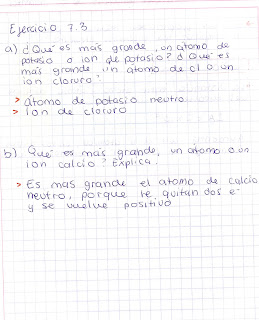 Ejercicio 7.3
a) ¿Qué es mas grande, un atomo de
potasio o ion de potasio? ¿Qué es
más grande, un atomo de cl o un
ion cloruro?
> atomo de potasio neutro
> ion de cloruro
b) Que es más grande, un atomo o un
ion calcio? Explica.
> Es mas grande el atomo de calcio
neutro, porque le quitan dos e-
y se vuelve positivo